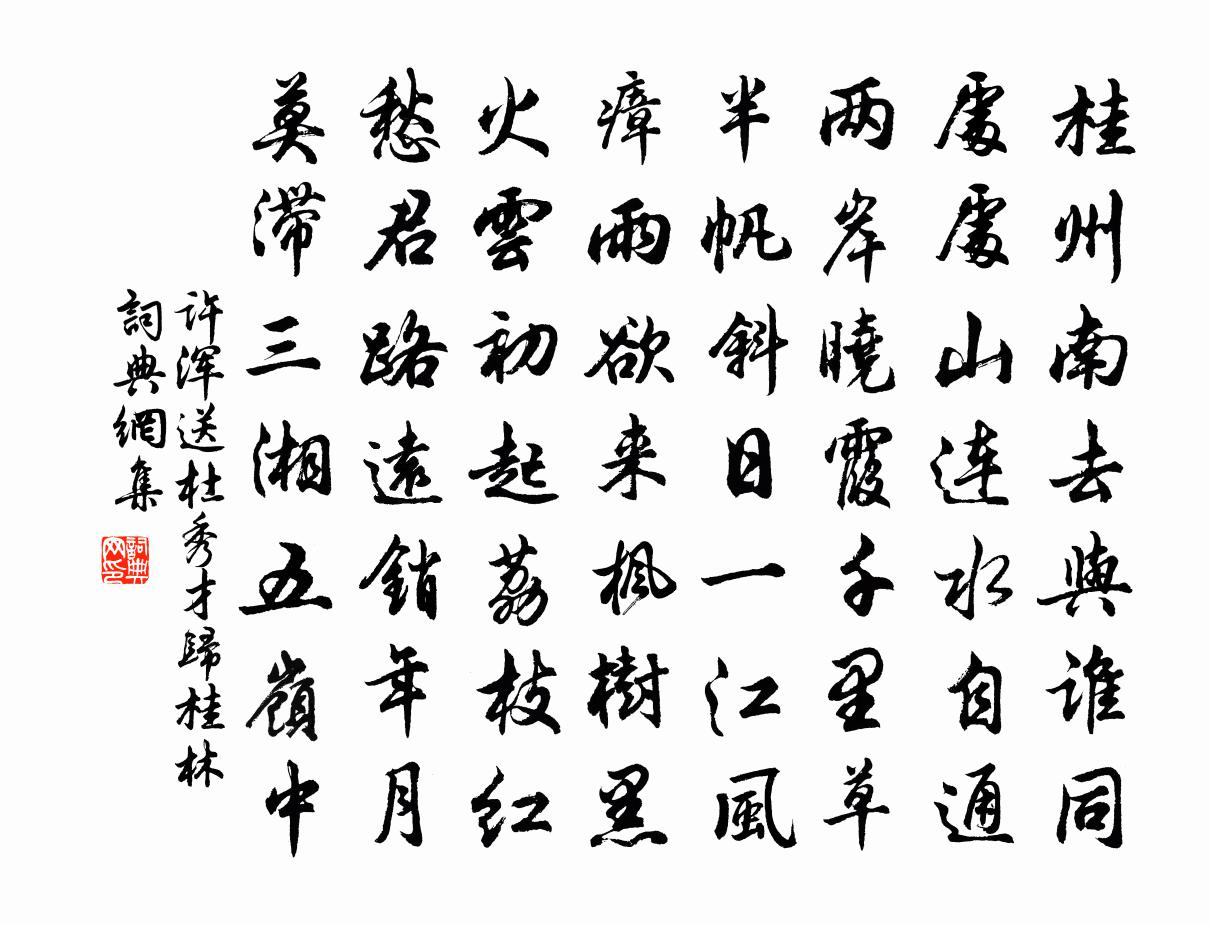 桂州南去與誰同
處處山連水自通
两岸曉霞千里草
半帆斜日一江風
瘴雨欲来楓樹黑
火雲初起荔枝紅
愁君路遠銷年月
莫滞三湘五嶺中
许渾送杜秀才歸桂林
詞典網集
詞典网印